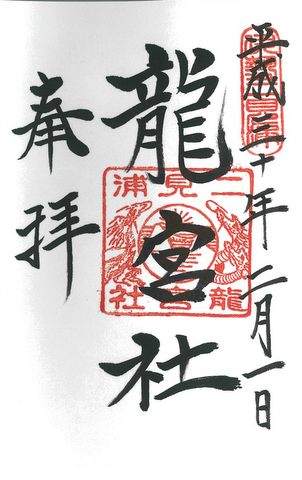 平成三十年二月一日
龍宮社
奉拝
二見浦
龍宮社